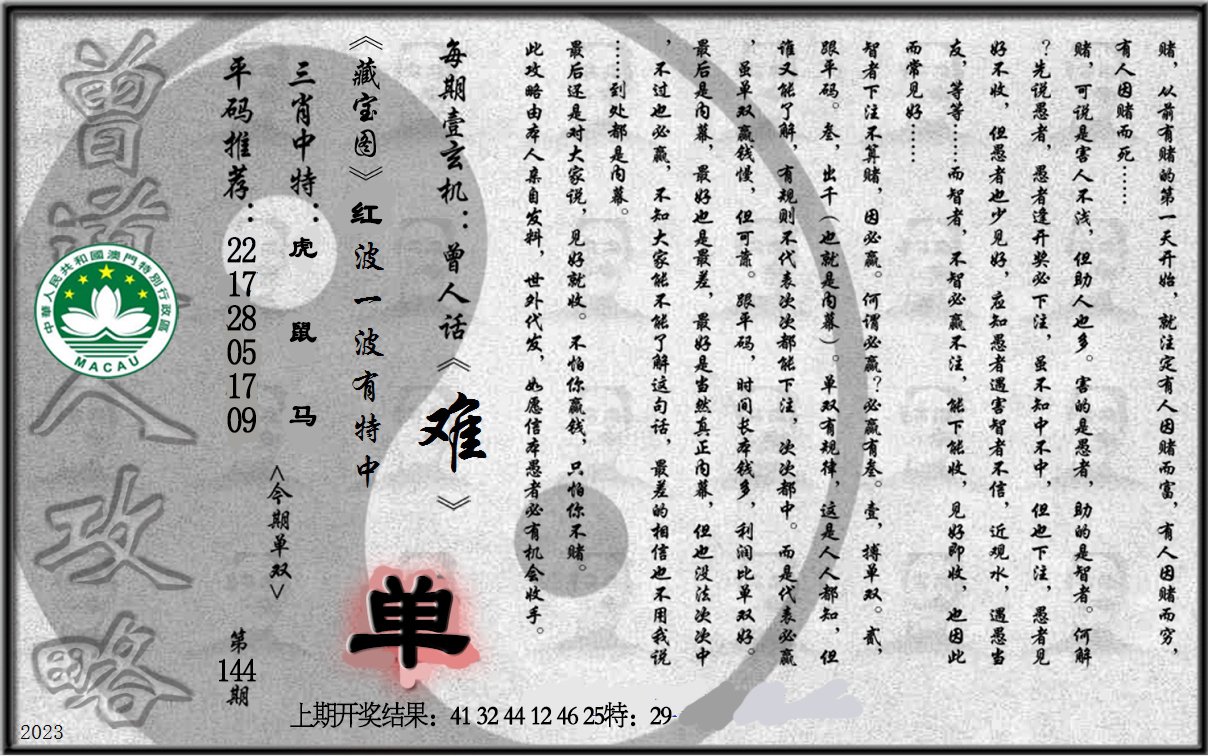 赌，从前有赌的第一天开始，就注定有人因赌而富，有人因赌而穷，
有人因赌而死……
赌，可说是害人不浅，但助人也多。害的是愚者，助的是智者。何解
？先说愚者，愚者逢开奖必下注，虽不知中不中，但也下注，愚者见
好不收，但愚者也少见好，应知愚者遇害智者不信，近观水，遇愚当
友，等等……而智者，不智必赢不注，能下能收，见好即收，也因此
而常见好……
智者下注不算赌，因必赢。何谓必赢？必赢有叁。壹，搏单双。贰，
跟平码。叁，出千（也就是内幕）。单双有规律，这是人人都知，但
谁又能了解，有规则不代表次次都能下注，次次都中。而是代表必赢
，虽单双赢钱慢，但可靠。跟平码，时间长本钱多，利润比单双好。
最后是内幕，最好也是最差，最好是当然真正内幕，但也没法次次中
，不过也必赢，不知大家能不能了解这句话，最差的相信也不用我说
……到处都是内幕。
最后还是对大家说，见好就收。不怕你赢钱，只怕你不赌。
此攻略由本人亲自发料，世外代发，如愿信本愚者必有机会收手。
每期壹玄机：曾人话《难》
《藏宝图》红波一波有特中
单
三肖中特：虎 鼠 马
<今期单双>
平码推荐：22 17 28 05 17 09
第144期
曾道人攻略
中華人民共和國澳門特別行政區
MACAU
上期开奖结果：41 32 44 12 46 25特：29-
2023